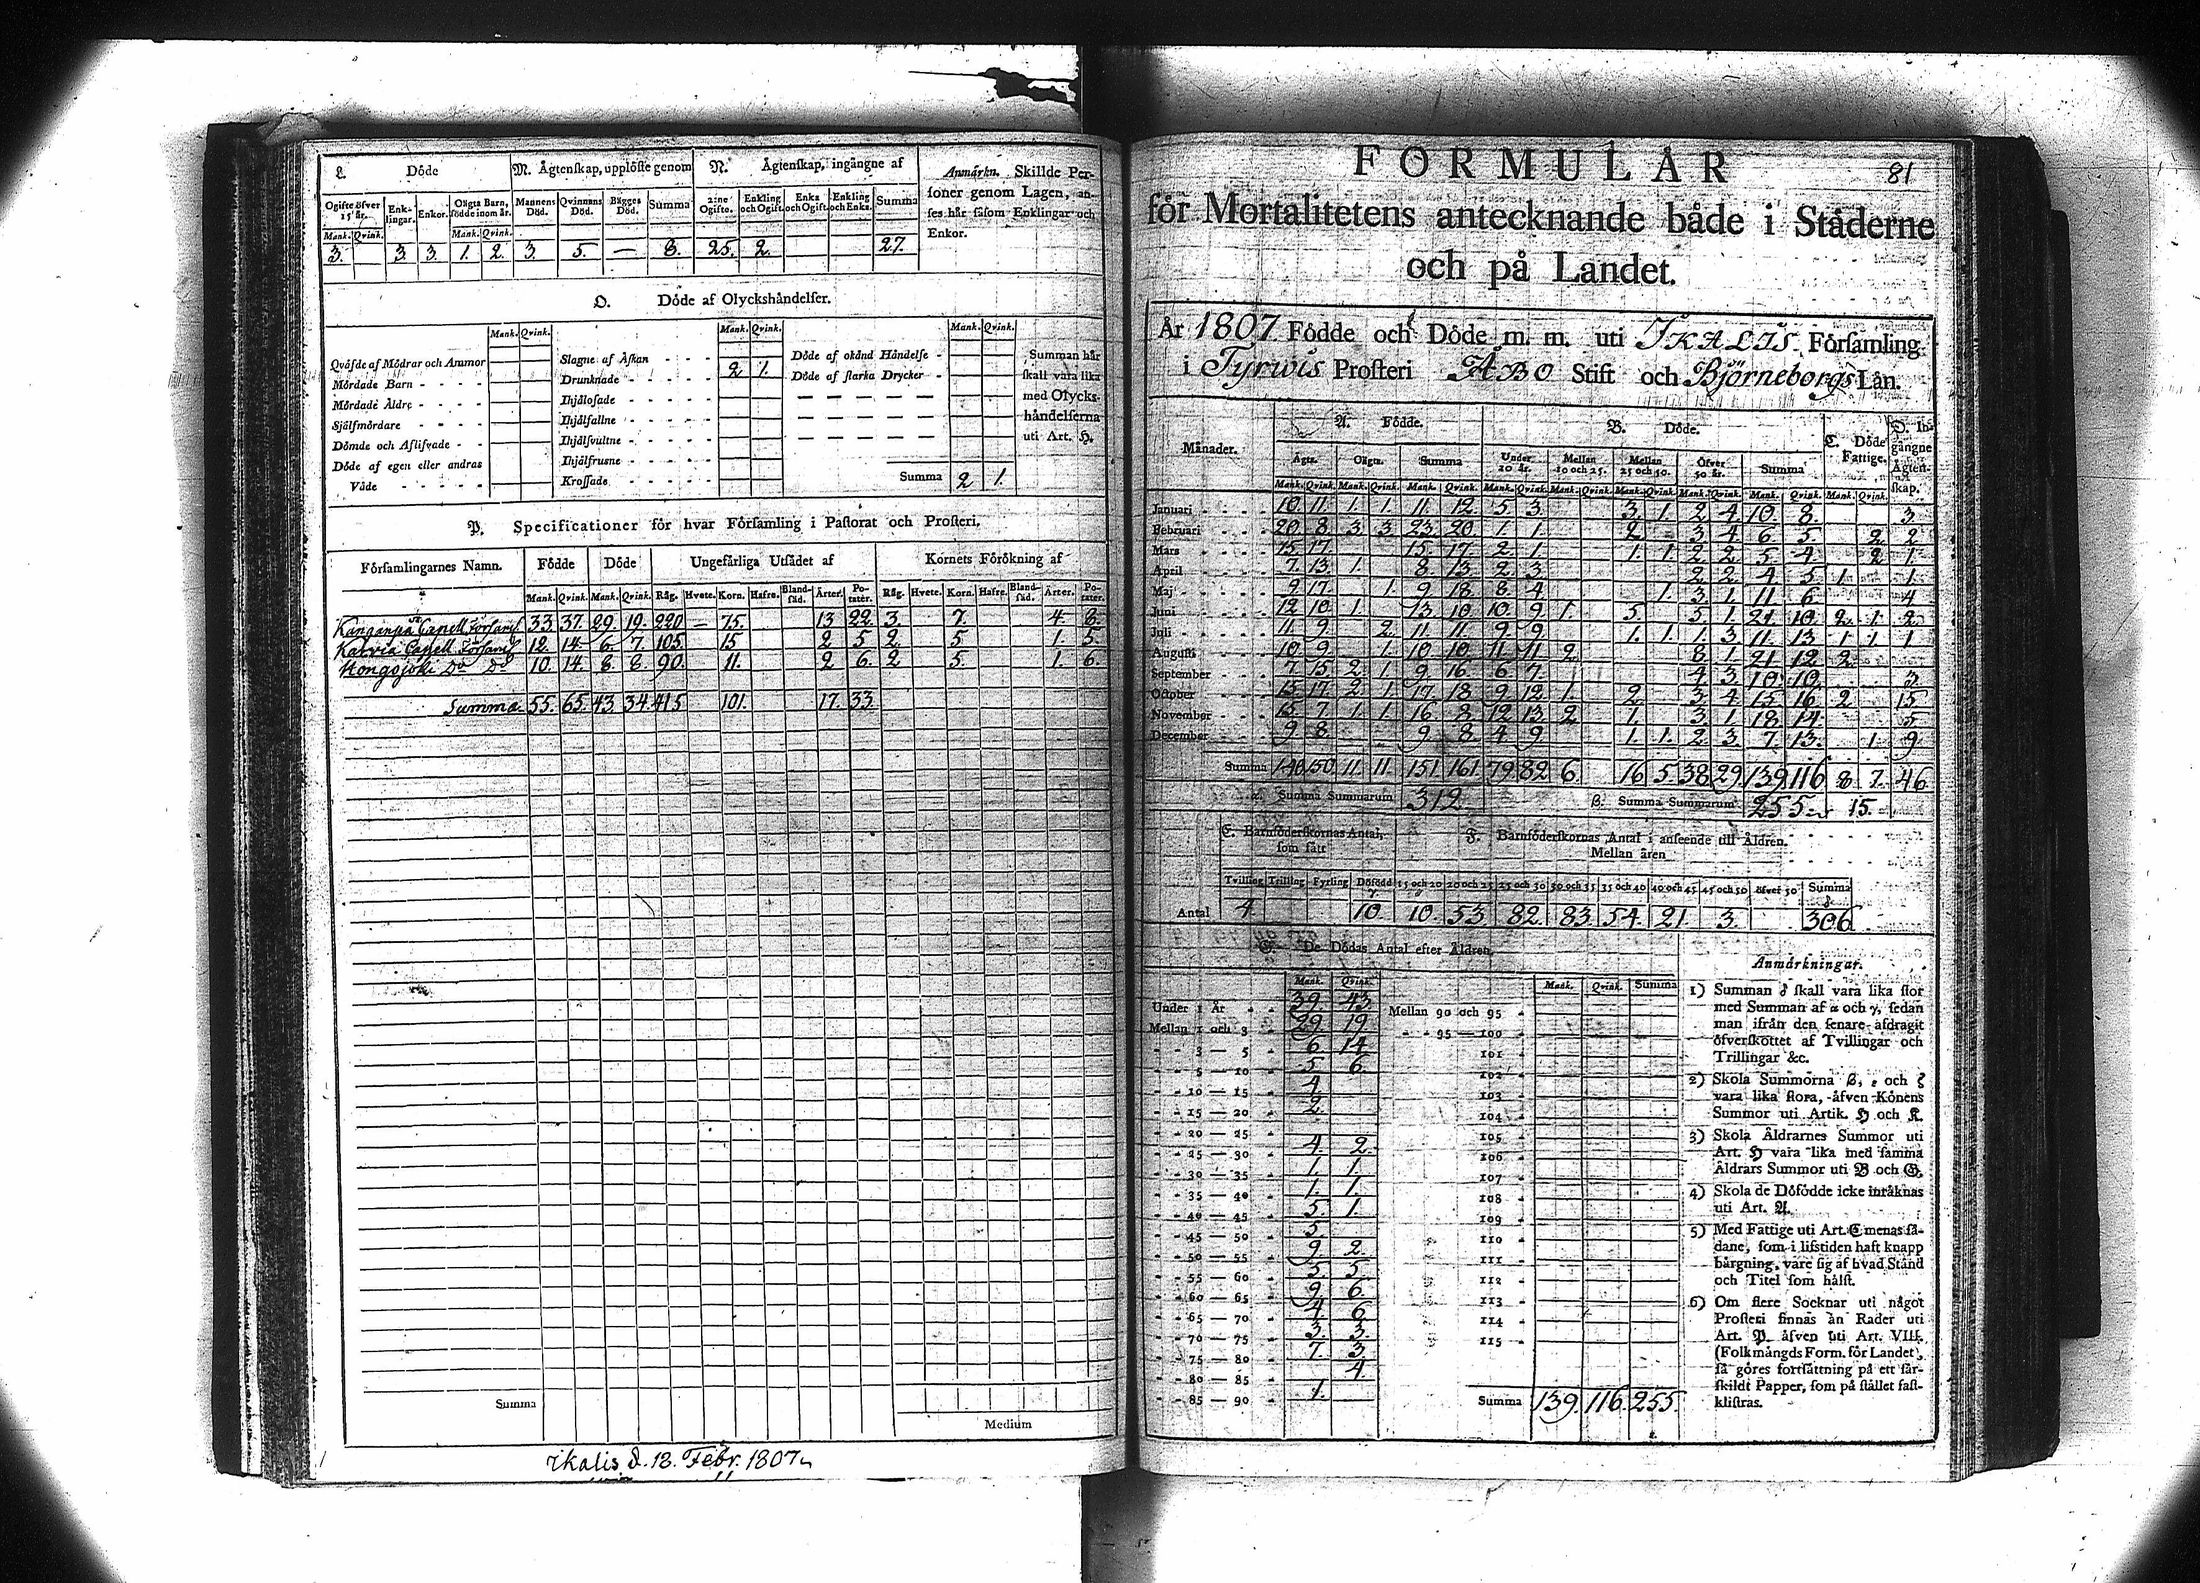 L. Döde
M. Ågtenskap, upplöste genom
N. Ågtenskap, ingångne af
Anmärkn. Skillde Per-
soner genom Lagen, an-
ses hår såsom Enklingar och
Enkor.
Ogifte öfver 15 år. Enk-lingar. Enkor. Oågta Barn, födde inom år. Mannens Död. Qvinnans Död. Bågges Död. Summa 2:ne Ogifte. Enkling och Ogift. Enka och Ogift. Enkling och Enka. Summa
Mank. Qvink. Mank. Qvink.
3. 3. 3. 1. 2. 3. 5. — 8. 25. 2. 27.
O. Döde af Olyckshåndelser.
Mank. Qvink. Mank. Qvink. Mank. Qvink.
Qvåfde af Mödrar och Ammor
Mördade Barn - - - -
Mördade Åldre - - - -
Själfmördare - - - -
Dömde och Aflifvade - -
Döde af egen eller andras
Våde - - - - -
Slagne af Åskan - - - -
Drunknade - - - - 2 1.
Ihjålosade - - - - -
Ihjålfallne - - - - -
Ihjålsvultne - - - - -
Ihjålfrusne - - - - -
Krossade - - - - -
Döde af okånd Håndelse -
Döde af starka Drycker -
Summa 2 1.
Summan hår
skall vara lika
med Olycks-
håndelserna
uti Art. H.
P. Specificationer för hvar Församling i Pastorat och Prosteri.
Församlingarnes Namn. Födde Döde Ungefårliga Utsådet af Kornets Förökning af
Mank. Qvink. Mank. Qvink. Råg. Hvete. Korn. Hafre. Bland-såd. Årter. Po-tater. Råg. Hvete. Korn. Hafre. Bland-såd. Årter. Po-tater.
Kanganpä Capell Församl 33 37 29. 19. 220 — 75. 13 22. 3. 7. 4. 8.
Karvia Capell Församl 12. 14. 6. 7. 105. 15 2 5 2. 5. 1. 5.
Hongojoki Do Do 10. 14. 8. 8. 90. 11. 2 6. 2 5. 1. 6.
Summa 55. 65. 43. 34. 415 101. 17. 33.
Summa
Medium
Ikalis d. 18. Febr. 1807
81
FORMULÅR
för Mortalitetens antecknande både i Städerne
och på Landet.
År 1807 Födde och Döde m. m. uti IKALIS Församling
i Tyrwis Prosteri ÅBO Stift och Björneborgs Lån.
Månader. A. Födde. B. Döde. C. Döde Fattige. D. In-gångne Ågten-skap.
Ågta. Oågta. Summa Under 10 år. Mellan 10 och 25. Mellan 25 och 50. Öfver 50 år. Summa
Mank. Qvink. Mank. Qvink. Mank. Qvink. Mank. Qvink. Mank. Qvink. Mank. Qvink. Mank. Qvink. Mank. Qvink. Mank. Qvink.
Januari 10. 11. 1. 1. 11. 12. 5 3. 3. 1. 2 4. 10. 8. 3.
Februari 20. 8. 3. 3. 23. 20. 1. 1. 2. 3 4. 6 5. 2 2
Mars 15 17. 15. 17. 2. 1. 1. 1. 2 2. 5 4. 2 1.
April 7. 13. 1. 8. 13. 2 3 2 2. 4. 5 1. 1
Maj 9 17. 1. 9. 18. 8. 4 1. 3. 1. 11. 6. 4
Juni 12 10. 1. 13 10 10. 9. 1. 5. 5. 1. 21. 10 2. 1. 2
Juli 11. 9. 2. 11. 11. 9 9. 1. 1. 1. 3. 11. 13. 1 1 1
Augusti 10 9. 1. 10 10. 11. 11 2. 8. 1. 21. 12 2.
September 7 15. 2. 1. 9. 16. 6 7. 4 3. 10. 10. 3
October 15 17. 2. 1. 17. 18. 9 12. 1. 2. 3 4. 15 16. 2 15
November 15 7. 1. 1. 16 8. 12 13. 2 1. 3. 1. 18. 14. 5
December 9 8. 9. 8. 4. 9 1. 1. 2. 3. 7. 13. 1. 9
Summa 140 150. 11. 11. 151. 161. 79. 82 6. 16 5. 38. 29. 139. 116 8 7. 46
α. Summa Summarum 312. β. Summa Summarum 255. 15.
E. Barnföderskornas Antal, som fått
F. Barnföderskornas Antal i anseende till Åldren.
Mellan åren
Tvilling Trilling Fyrling Dödfödd 15 och 20 20 och 25 25 och 30 30 och 35 35 och 40 40 och 45 45 och 50 öfver 50 Summa
Antal 4. 10. 10. 53 82. 83. 54. 21. 3. 306
G. De Dödas Antal efter Åldren.
Mank. Qvink. Mank. Qvink. Summa
Under 1 År 39. 43.
Mellan 1 och 3 29. 19.
3 — 5 6 14
5 — 10 5. 6.
10 — 15 4
15 — 20 2.
20 — 25
25 — 30 4. 2.
30 — 35 1. 1.
35 — 40 1. 1.
40 — 45 5 1.
45 — 50 5.
50 — 55 9. 2.
55 — 60 5. 5.
60 — 65 9 6.
65 — 70 4 6
70 — 75 3. 3.
75 — 80 7. 3.
80 — 85 4.
85 — 90 1.
Mellan 90 och 95
95 — 100
101
102
103
104
105
106
107
108
109
110
111
112
113
114
115
Summa 139. 116. 255.
Anmårkningar.
1) Summan δ skall vara lika stor
med Summan af α och γ, sedan
man ifrån den senare afdragit
öfverskottet af Tvillingar och
Trillingar &c.
2) Skola Summorna β, ε och ζ
vara lika stora, åfven Könens
Summor uti Artik. H och K.
3) Skola Åldrarnes Summor uti
Art. H vara lika med samma
Åldrars Summor uti B och G.
4) Skola de Döfödde icke inråknas
uti Art. A.
5) Med Fattige uti Art. C menas så-
dane, som i lifstiden haft knapp
bårgning, vare sig af hvad Stånd
och Titel som hålst.
6) Om flere Socknar uti något
Prosteri finnas ån Rader uti
Art. P åfven uti Art. VIII.
(Folkmångds Form. för Landet),
så göres fortsåttning på ett sår-
skildt Papper, som på stållet fast-
klistras.